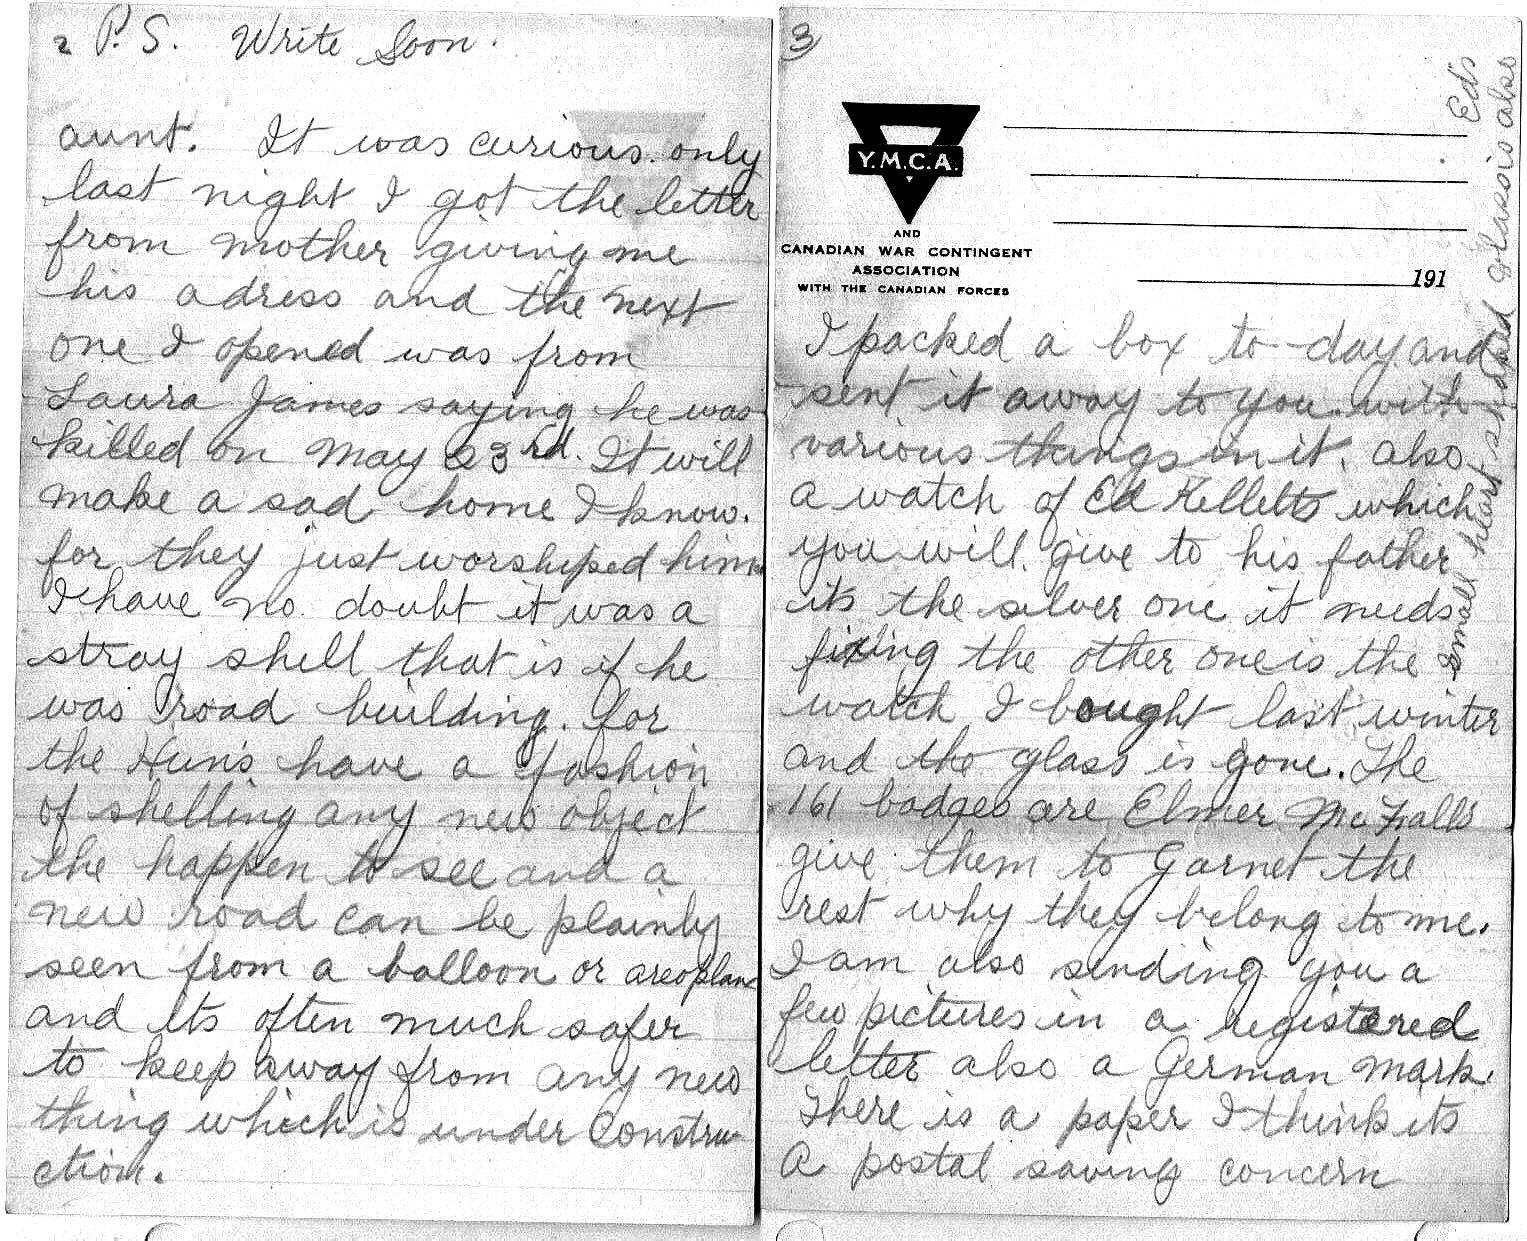 2 P.S. Write Soon.
aunt. It was curious. only
last night I got the letter
from mother giving me
his adress and the next
one I opened was from
Laura James saying he was
killed on May 23rd. It will
make a sad home I know.
for they just worshiped him
I have no doubt it was a
stray shell that is if he
was road building. for
the Huns have a fashion
of shelling any new object
the happen to see and a
new road can be plainly
seen from a balloon or areoplane
and its often much safer
to keep away from any new
thing which is under Constru-
ction.
3
Y.M.C.A.
AND
CANADIAN WAR CONTINGENT
ASSOCIATION
WITH THE CANADIAN FORCES
191
I packed a box to-day and
sent it away to you with
various things in it. also
a watch of Ed Kelletts which
you will give to his father
its the silver one it needs
fixing the other one is the
watch I bought last winter
and the glass is gone. The
161 badges are Elmer McFalls
give them to Garnet the
rest why they belong to me.
I am also sending you a
few pictures in a registered
letter also a German mark.
There is a paper I think its
a postal saving concern
small heart shaped glass is also
Eds